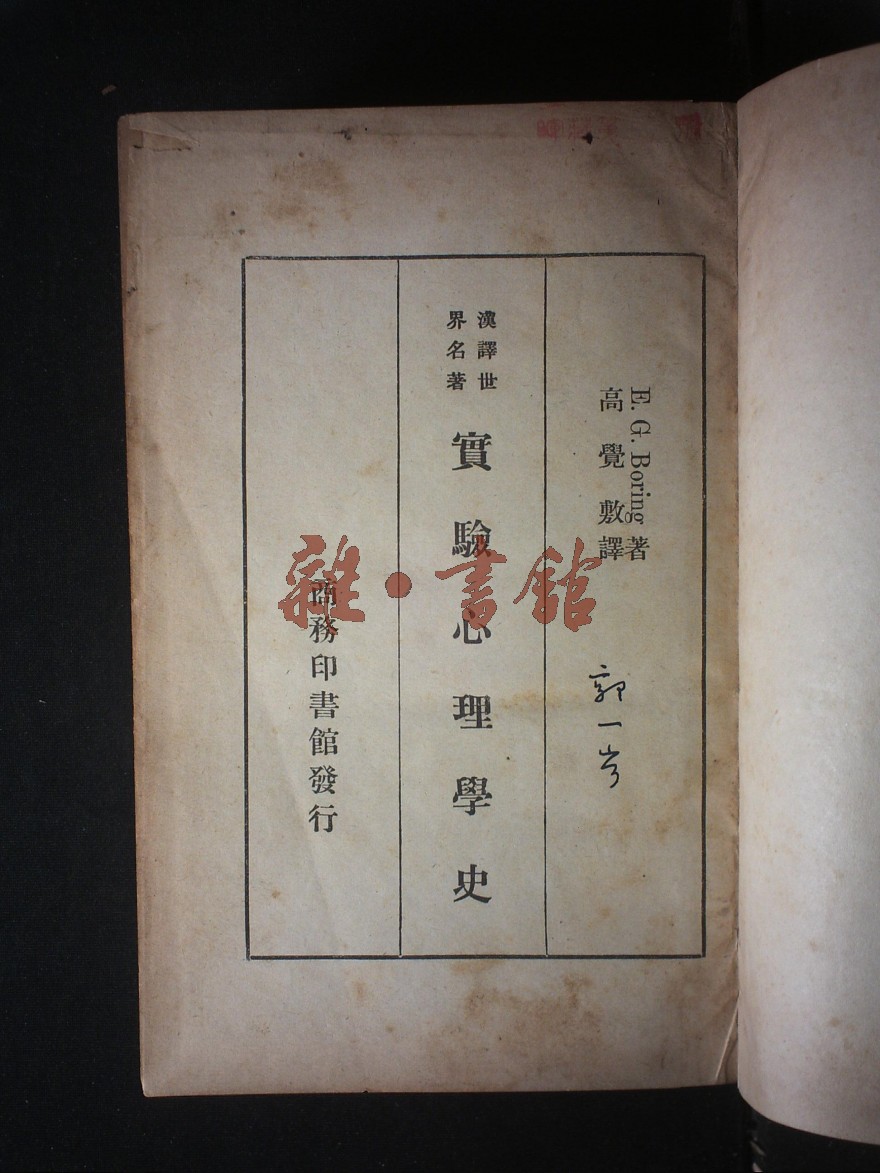 E. G. Boring著
高覺敷譯
郭一岑
漢譯世
界名著
實驗心理學史
商務印書館發行
雜·書館